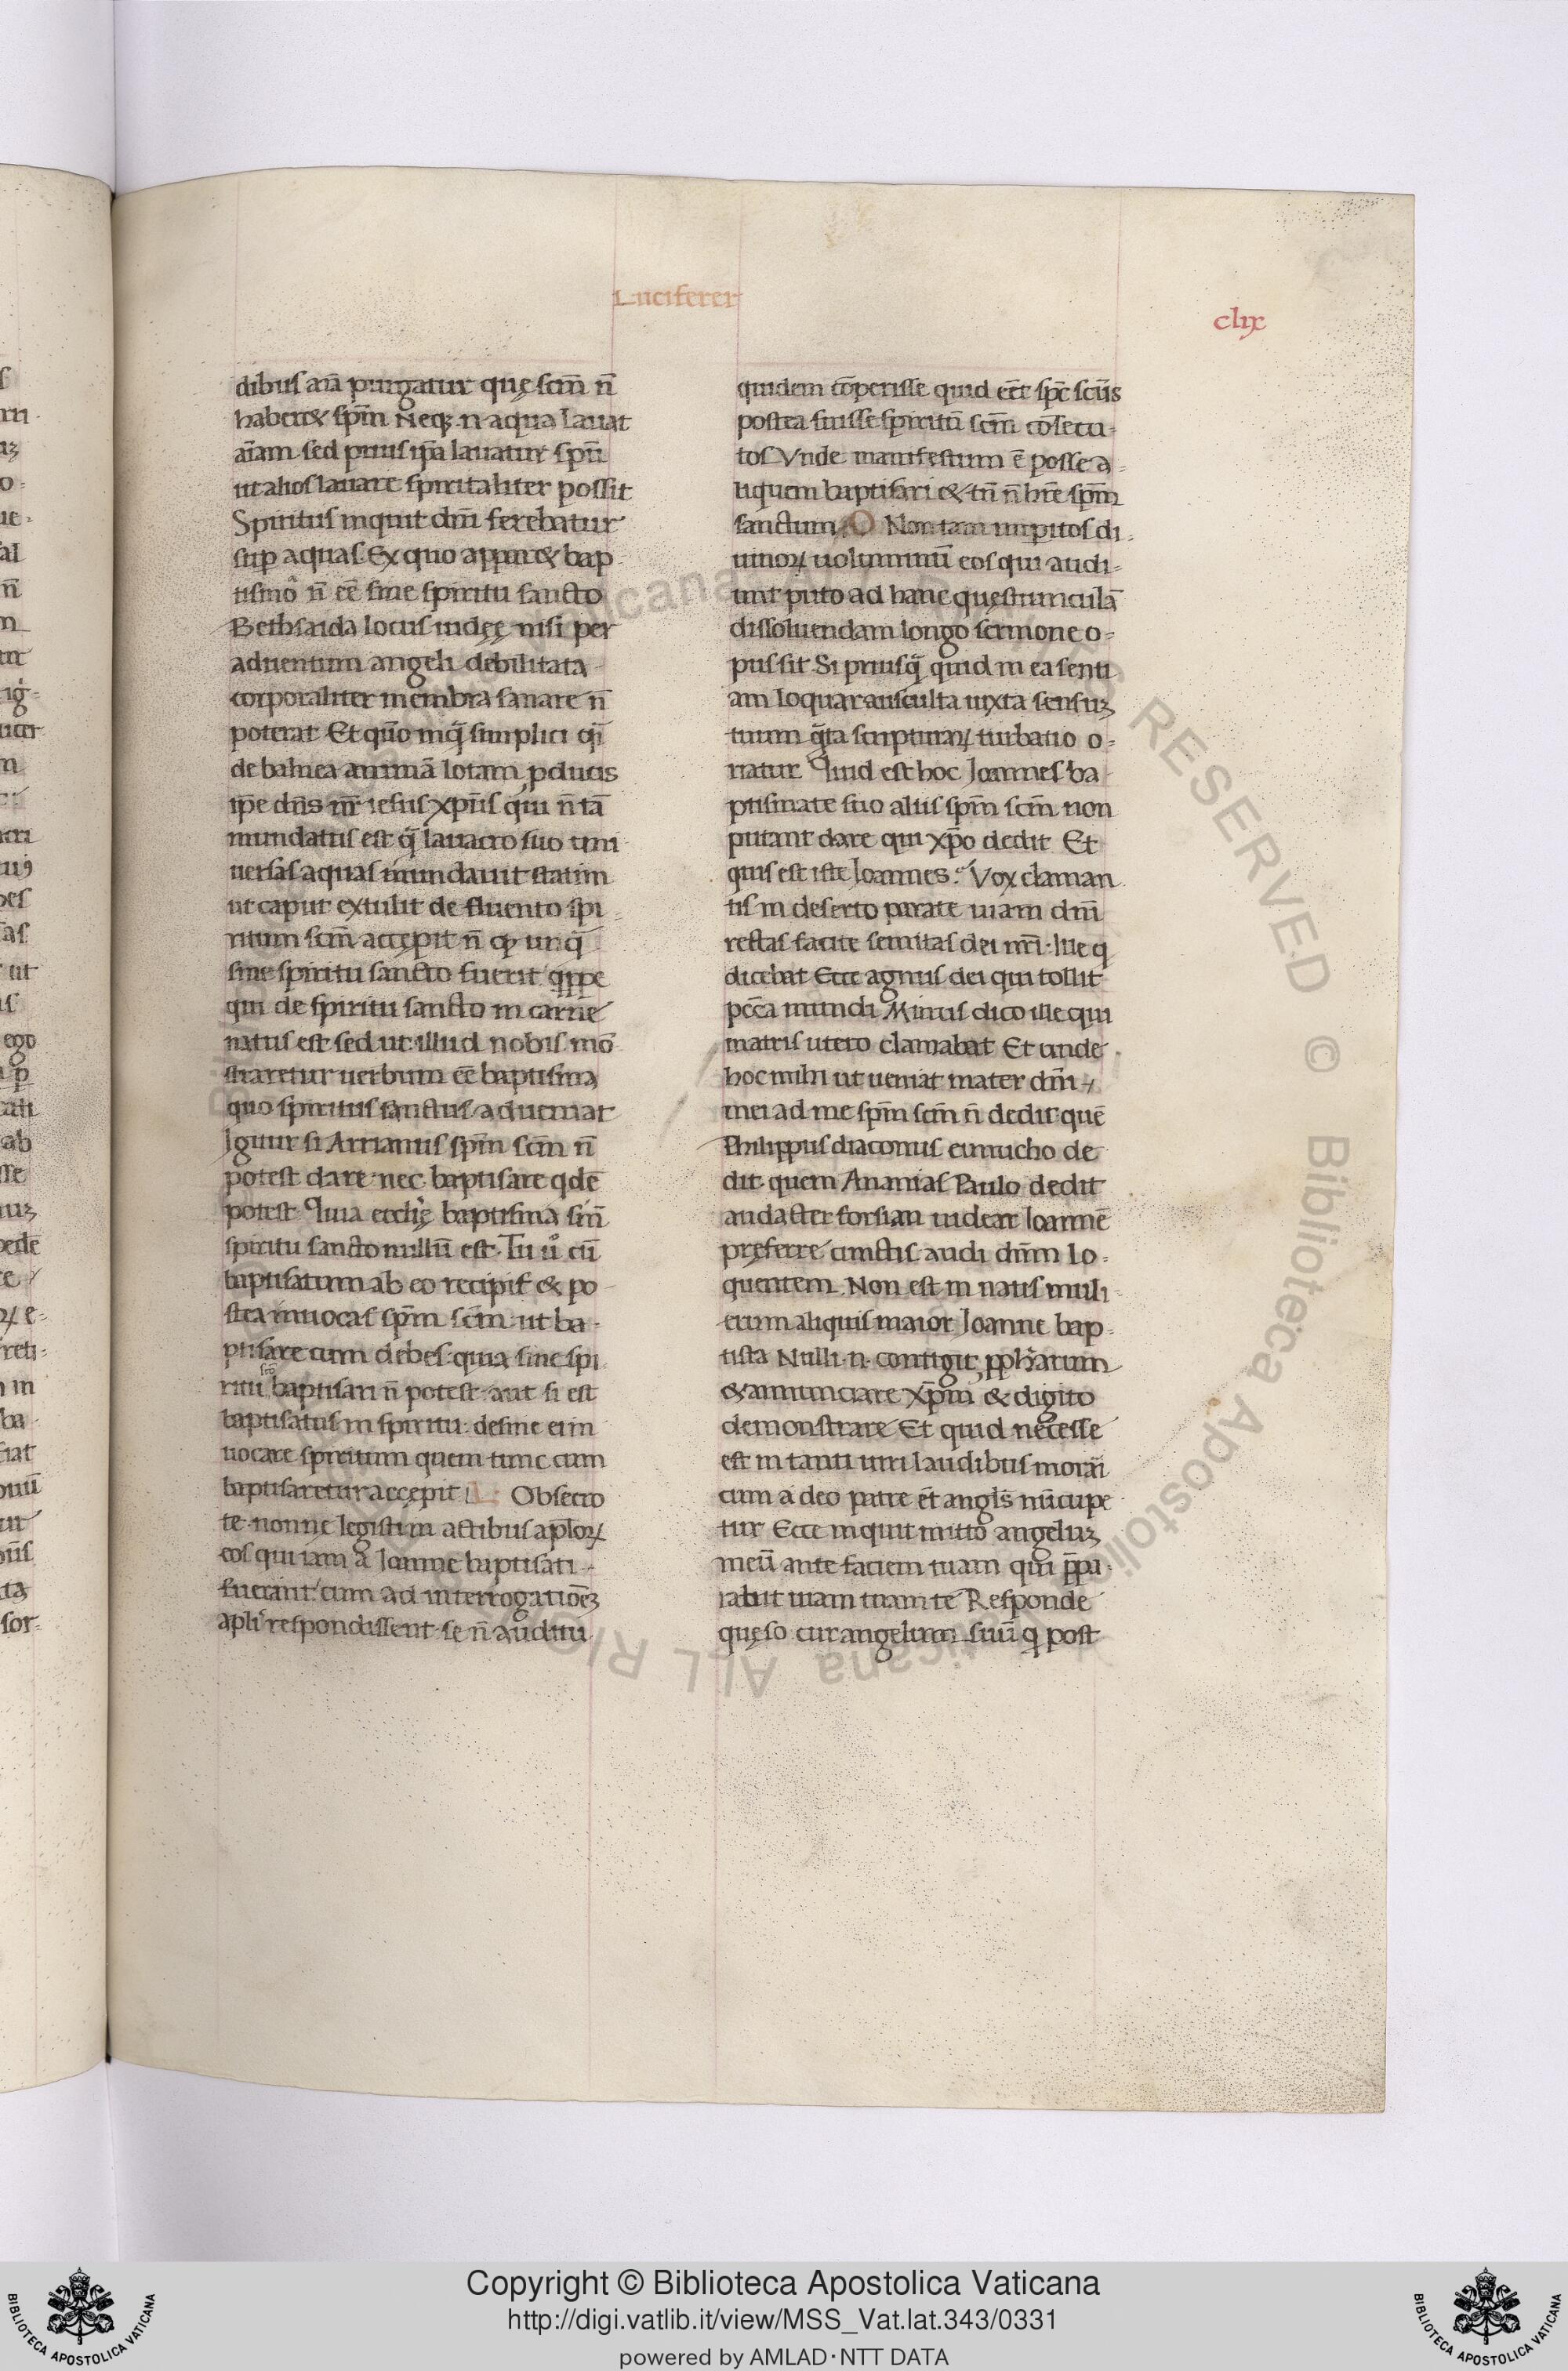 Luciferer
clix
dibus aīa purgatur quę scm̄ n̄
haber& sp̄m Neq; .n. aqua lauat
aīam sed prius ip̄a lauatur sp̄u
ut alios lauare spiritaliter possit
Spiritus inquit dn̄i ferebatur
sup aquas. Ex quo appar& bap
tismō n̄ eē sine spiritu sancto
Bethsaida locus iudęę nisi per
aduentum angeli debilitata
corporaliter membra sanare n̄
poterat Et quō inq̄ simplici q̄i
de balnea animā lotam pducis
ip̄e dn̄s nr̄ iesus xpūs qui n̄ tā
mundatus est q̄ lauacro suo uni
uersas aquas mundauit statim
ut caput extulit de fluento spi
ritum scm̄ accępit n̄ q unq̄
sine spiritu sancto fuerit qppe
qui de spiritu sancto in carne
natus est sed ut illud nobis mō
straretur uerbum eē baptisma
quo spiritus sanctus adueniat
Igitur si Arrianus sp̄m scm̄ n̄
potest dare nec baptisare qdē
potest Quia ecclię baptisma sin̄
spiritu sancto nullū est. Tu ů cū
baptisatum ab eo recipis & po
stea inuocas sp̄m scm̄ ut ba-
ptisare eum debes quia sine spi
ritu scō baptisari n̄ potest aut si est
baptisatus in spiritu: desine ei in
uocare spiritum quem tunc cum
baptisaretur accępit L Obsecro
te nonne legisti in actibus aplor̄
eos qui iam a Joanne baptisati
fuerant cum ad interrogationē
apli respondissent se n̄ auditu
quidem cōperisse quid eēt spc̄ scūs
postea fuisse spiritū scm̄ cōsecu-
tos Vnde manifestum ē posse a-
liquem baptisari & tn̄ n̄ hr̄e sp̄m
sanctum O Non tam imperitos di-
uinor̄ uoluminū eos qui audi-
unt puto ad hanc quęstiunculā
dissoluendam longo sermone o-
pus sit Si priusq̄ quid in ea senti
am loquar ausculta iuxta sensuz
tuum q̄ta scripturar̄ turbatio o-
riatur Quid est hoc Joannes ba
ptismate suo aliis sp̄m scm̄ non
putant dare qui xp̄o dedit Et
quis est iste Joannes: Vox claman
tis in deserto parate uiam dn̄i
rectas facite semitas dei nr̄i. Ille q
dicebat Ecce agnus dei qui tollit
pcc̄a mundi Minus dico ille qui
matris utero clamabat Et unde
hoc mihi ut ueniat mater dn̄i
mei ad me sp̄m scm̄ n̄ dedit quē
Philippus diaconus eunucho de
dit quem Ananias Paulo dedit
audacter forsian uidear Joannē
pręferre cunctis audi dn̄m lo-
quentem Non est in natis muli-
erum aliquis maior Joanne bap-
tista Nulli .n. contigit pphatum
& annunciare Xp̄m & digito
demonstrare Et quid necesse
est in tanti uiri laudibus morari
cum a deo patre et̄ angls nūcupe
tur Ecce inquit mitto angeluz
meū ante faciem tuam qui p̄pa-
rabit uiam tuam te Responde
quęso cur angelum suū q post
Copyright © Biblioteca Apostolica Vaticana
http://digi.vatlib.it/view/MSS_Vat.lat.343/0331
powered by AMLAD·NTT DATA